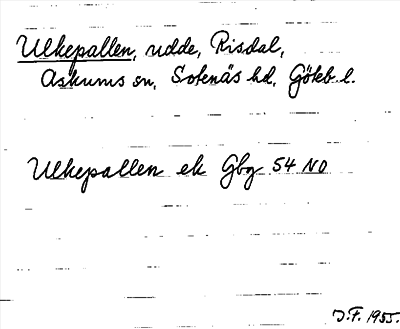 Ulkepallen, udde, Risdal,
Askums sn, Sotenäs hd, Göteb. l.
Ulkepallen ek Gbg 54 NO
J.F. 1955.